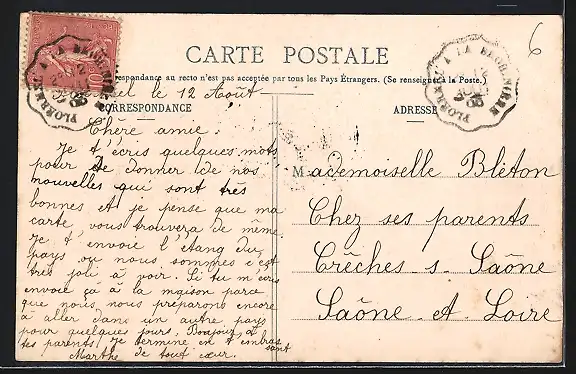 CARTE POSTALE
respondance au recto n'est pas acceptée par tous les Pays Étrangers. (Se renseigner à la Poste.)
le 12 Août
CORRESPONDANCE
ADRESSE
6
Chère amie.
Je t'écris quelques mots
pour te donner de nos
nouvelles qui sont très
bonnes et je pense que ma
carte vous trouvera de même.
Je t'envoie l'etang du
pays ou nous sommes c'est
très joli à voir. Si tu m'écris
envoie ça à la maison parce
que nous nous préparons encore
à aller dans un autre pays
pour quelques jours, Bonjour à
tes parents, je termine en t'embras
sant
Marthe de tout cœur.
Mademoiselle Bléton
Chez ses parents
Crêches-s-Saône
Saône et Loire